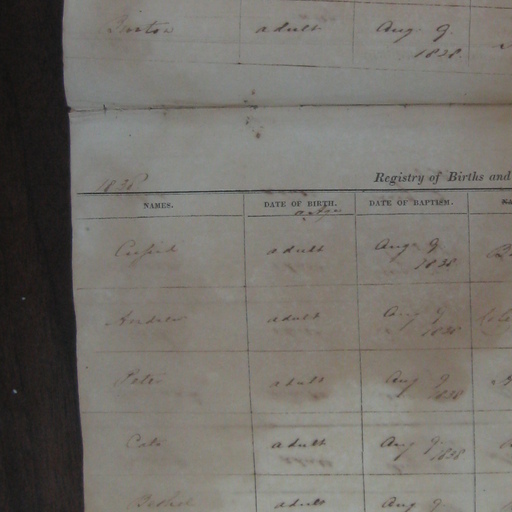 adult Aug. 9.
1838
1838
Registry of Births and
NAMES. DATE OF BIRTH. DATE OF BAPTISM.
or age
Cupid adult Aug. 9
1838
Andrew adult Aug 9
1838
Peter adult Aug 9
1838
Cato adult Aug 9.
1838
adult Aug 9